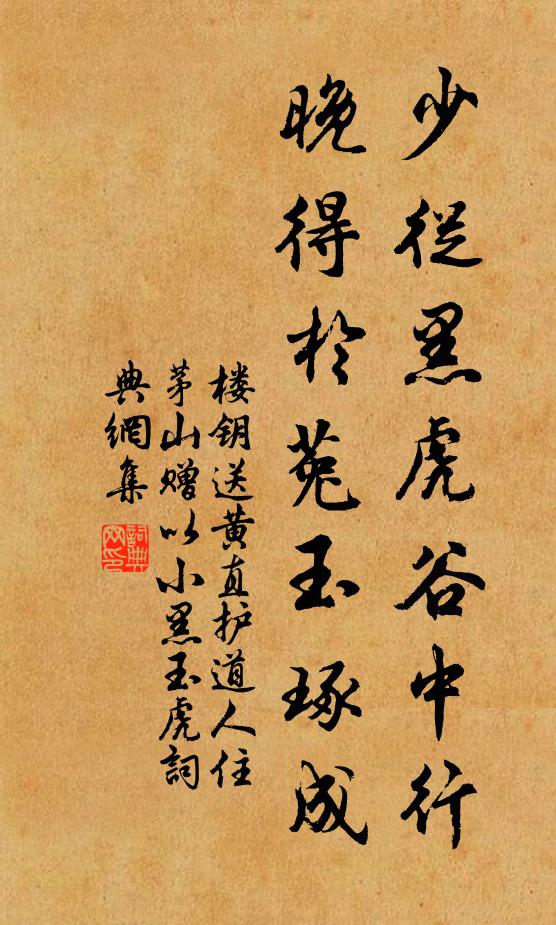 少從黑虎谷中行
晚得於菟玉琢成
楼钥送黄直护道人住
茅山赠以小黑玉虎詞
典網集
詞典
网印